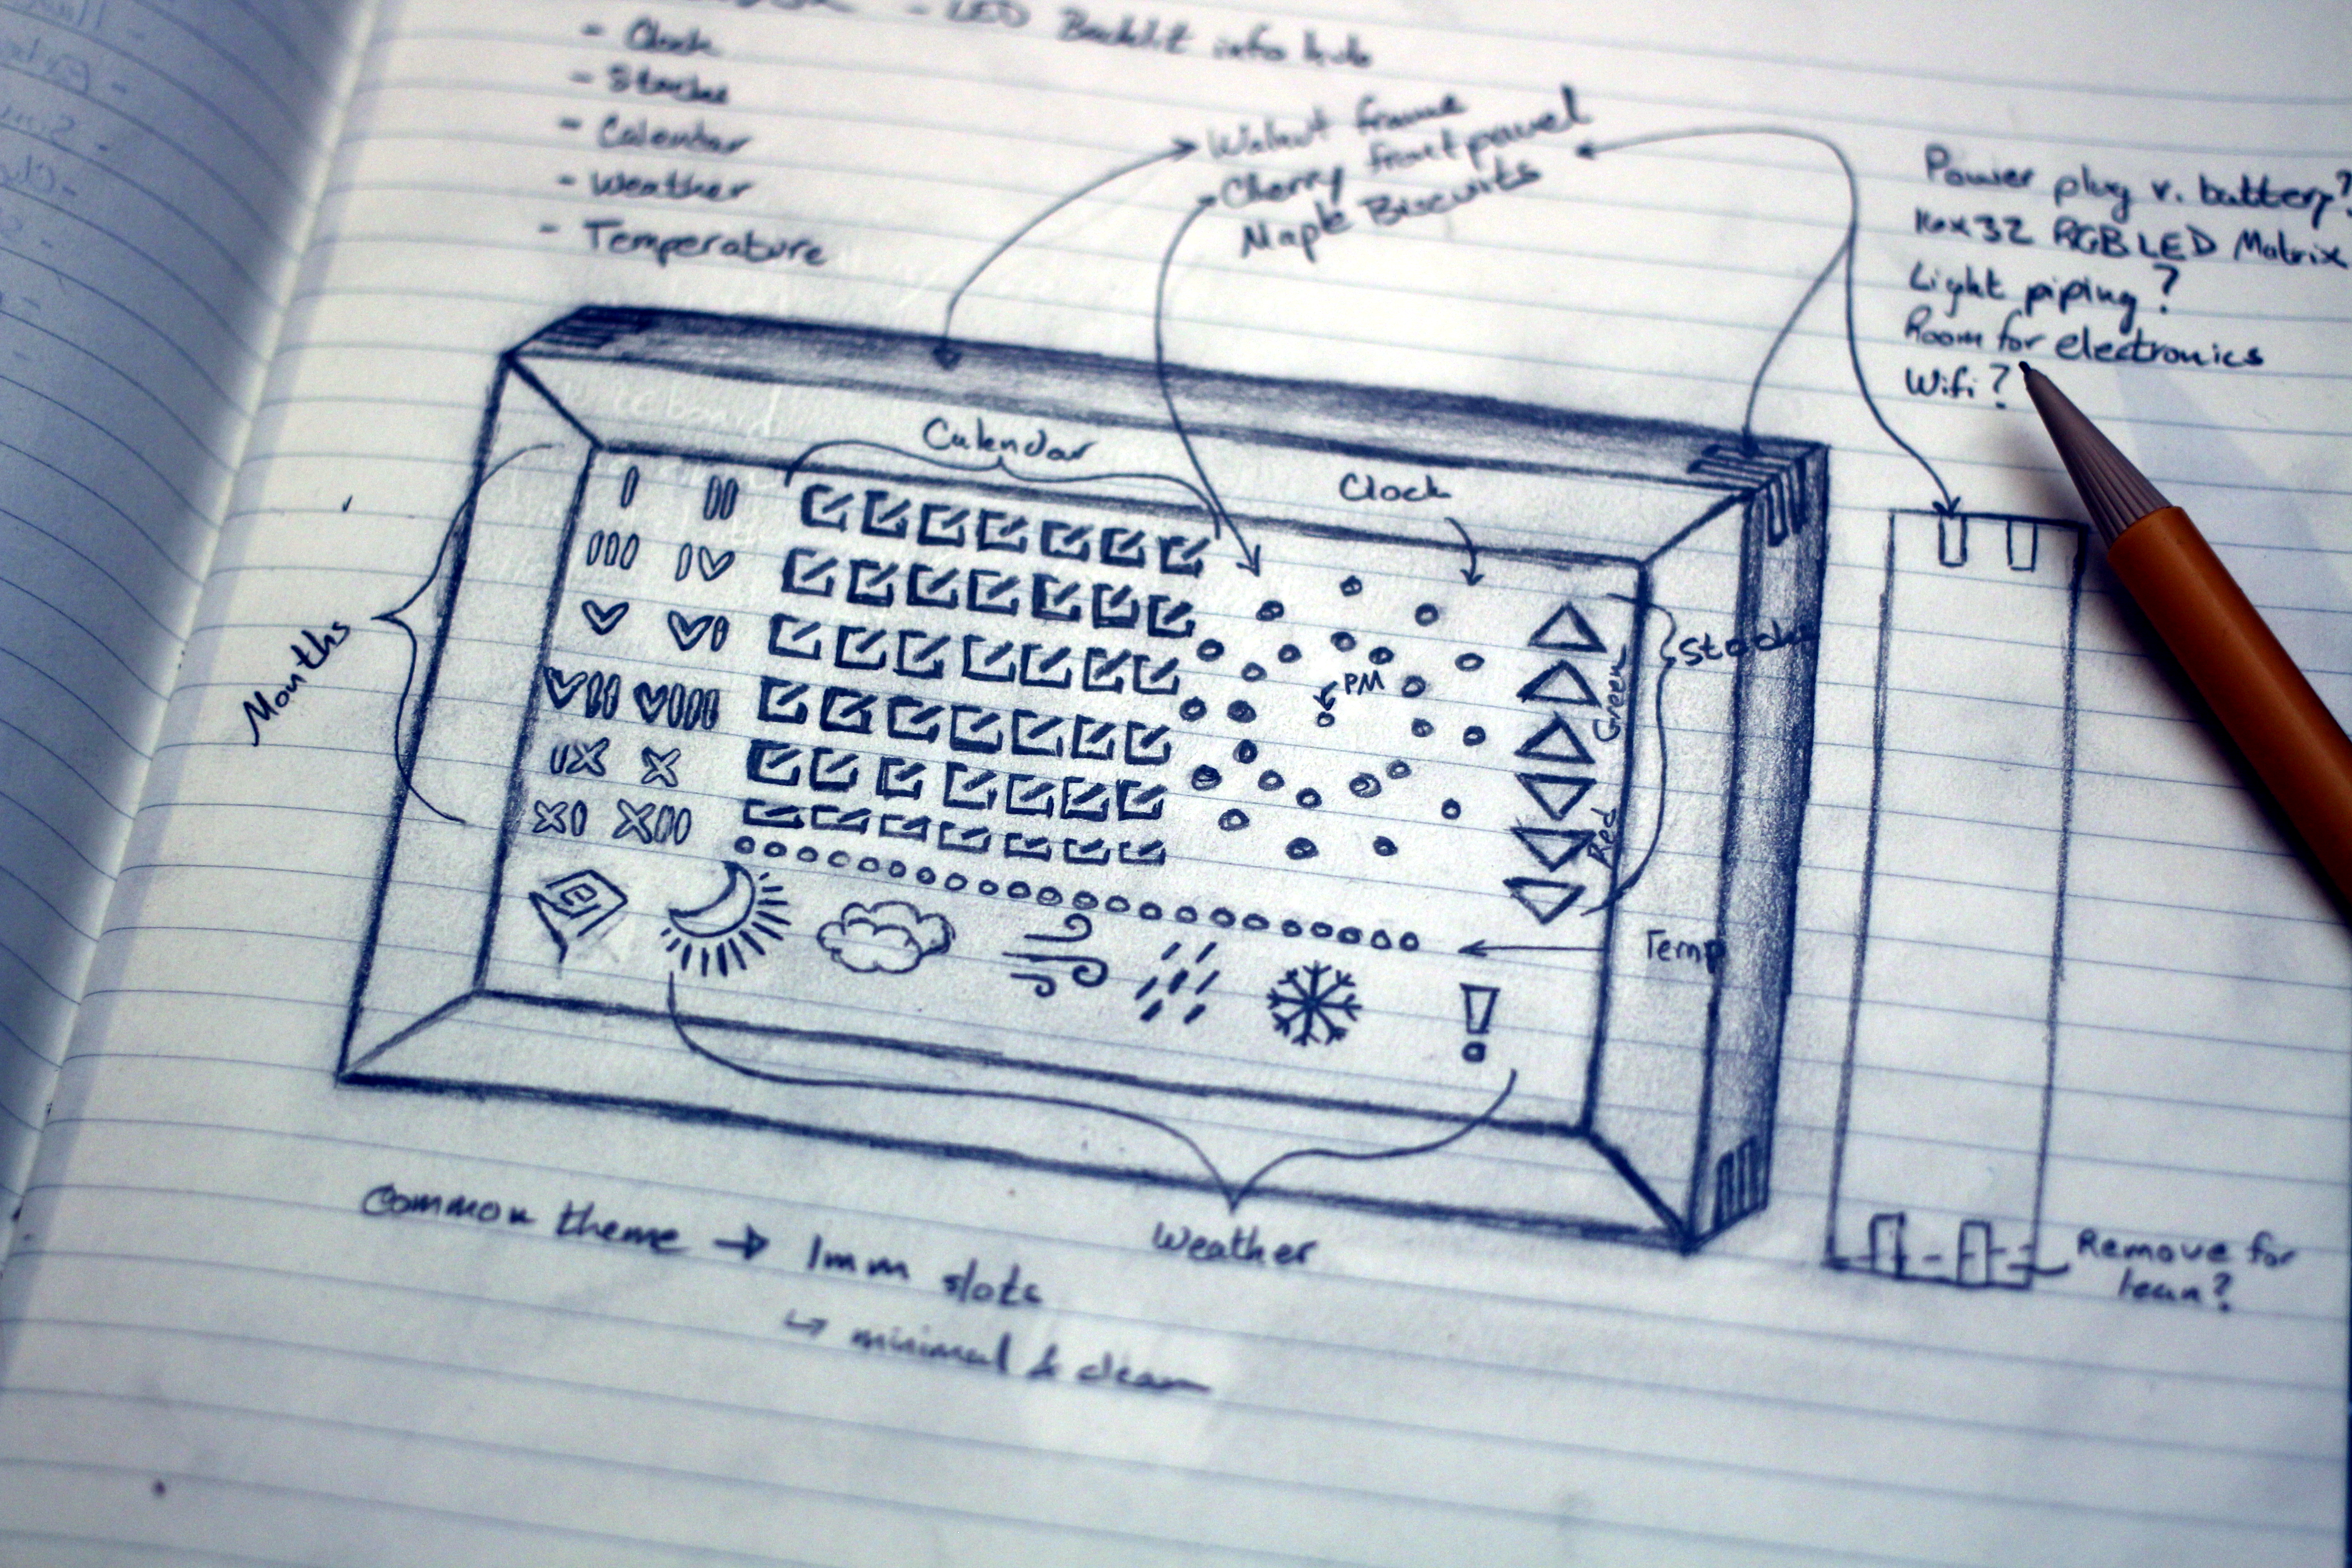 - LED Backlit info hub
- Clock
- Stocks
- Calendar
- Weather
- Temperature
Walnut frame
Cherry front panel
Maple Biscuits
Power plug v. battery?
16x32 RGB LED Matrix
Light piping?
Room for electronics
Wifi?
Calendar
Clock
Months
I II
III IV
V VI
VII VIII
IX X
XI XII
PM
Stocks
Green
Red
Temp
Weather
Remove for
lean?
Common theme → 1mm slots
↳ minimal & clean